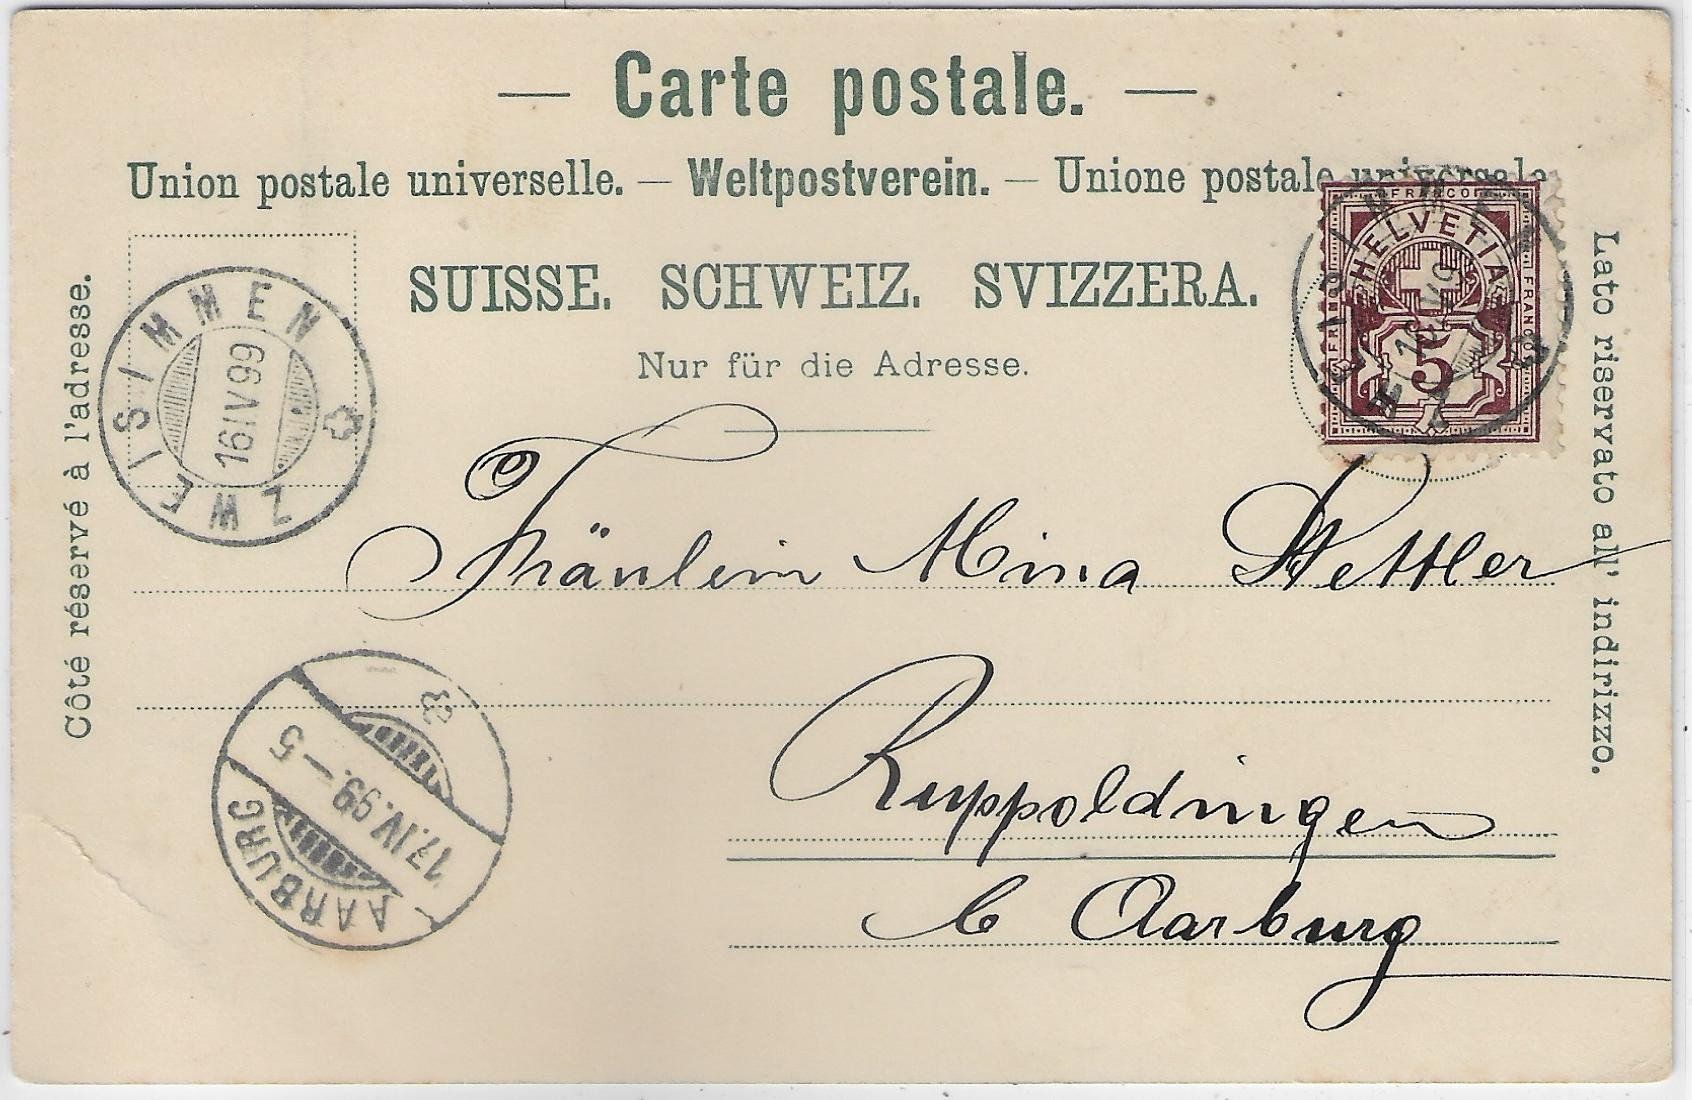 — Carte postale. —
Union postale universelle. — Weltpostverein. — Unione postale universale
SUISSE. SCHWEIZ. SVIZZERA.
Nur für die Adresse.
Côté réservé à l'adresse.
Lato riservato all' indirizzo.
FRANCO
HELVETIA
FRANCO
FRANCO
5
ZWEISIMMEN
16IV99
ZWEISIMMEN
16 IV 9
Fräulein Mina Stettler
Ruppoldingen
b Aarburg
AARBURG
17.IV.99.–5